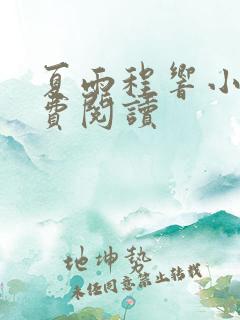 夏雨程響小
費閱讀
地坤熱
为
未经同意禁止转载